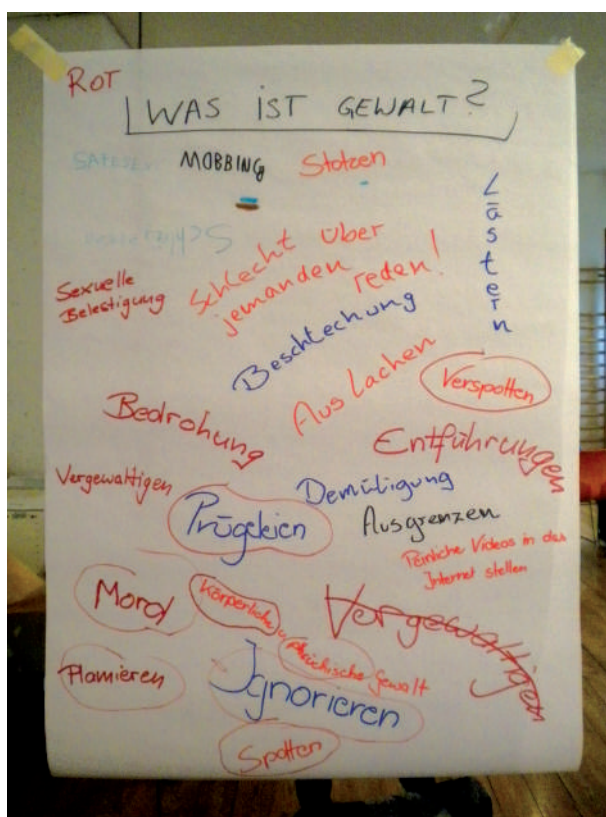 ROT
WAS IST GEWALT?
MOBBING
Stotzen
Lästern
Schlecht über
jemanden reden!
Sexuelle
Belestigung
Beschtechung
Auslachen
Verspotten
Bedrohung
Entführungen
Vergewaltigen
Demütigung
Prügeleien
Ausgrenzen
Peinliche Videos in das
Internet stellen
Mord
Körperliche u. phsichische Gewalt
Vergewaltigen
Blamieren
Ignorieren
Spotten